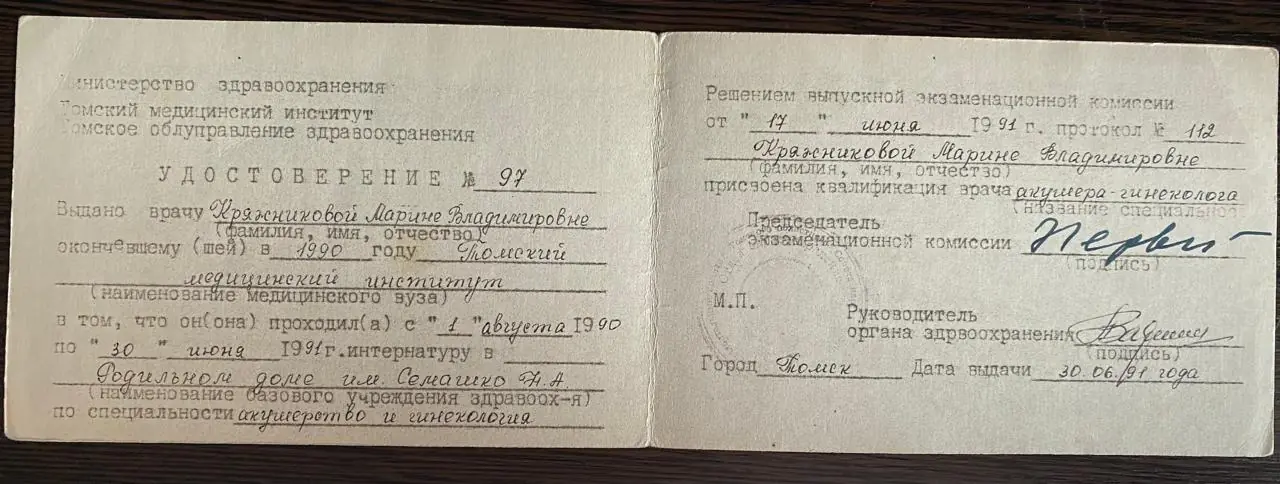 Министерство здравоохранения
Томский медицинский институт
Томское облуправление здравоохранения
УДОСТОВЕРЕНИЕ № 97
Выдано врачу Кряжниковой Марине Владимировне
(фамилия, имя, отчество)
окончевшему (шей) в 1990 году Томский
медицинский институт
(наименование медицинского вуза)
в том, что он(она) проходил(а) с "1" августа 1990
по "30" июня 1991г. интернатуру в
Родильном доме им. Семашко Н.А.
(наименование базового учреждения здравоох-я)
по специальности акушерство и гинекология
Решением выпускной экзаменационной комиссии
от "17" июня 1991г. протокол № 112
Кряжниковой Марине Владимировне
(фамилия, имя, отчество)
присвоена квалификация врача акушера-гинеколога
(название специальнос
Председатель
экзаменационной комиссии
(подпись)
М.П.
Руководитель
органа здрвоохранения
(подпись)
Город Томск Дата выдачи 30.06/91 года